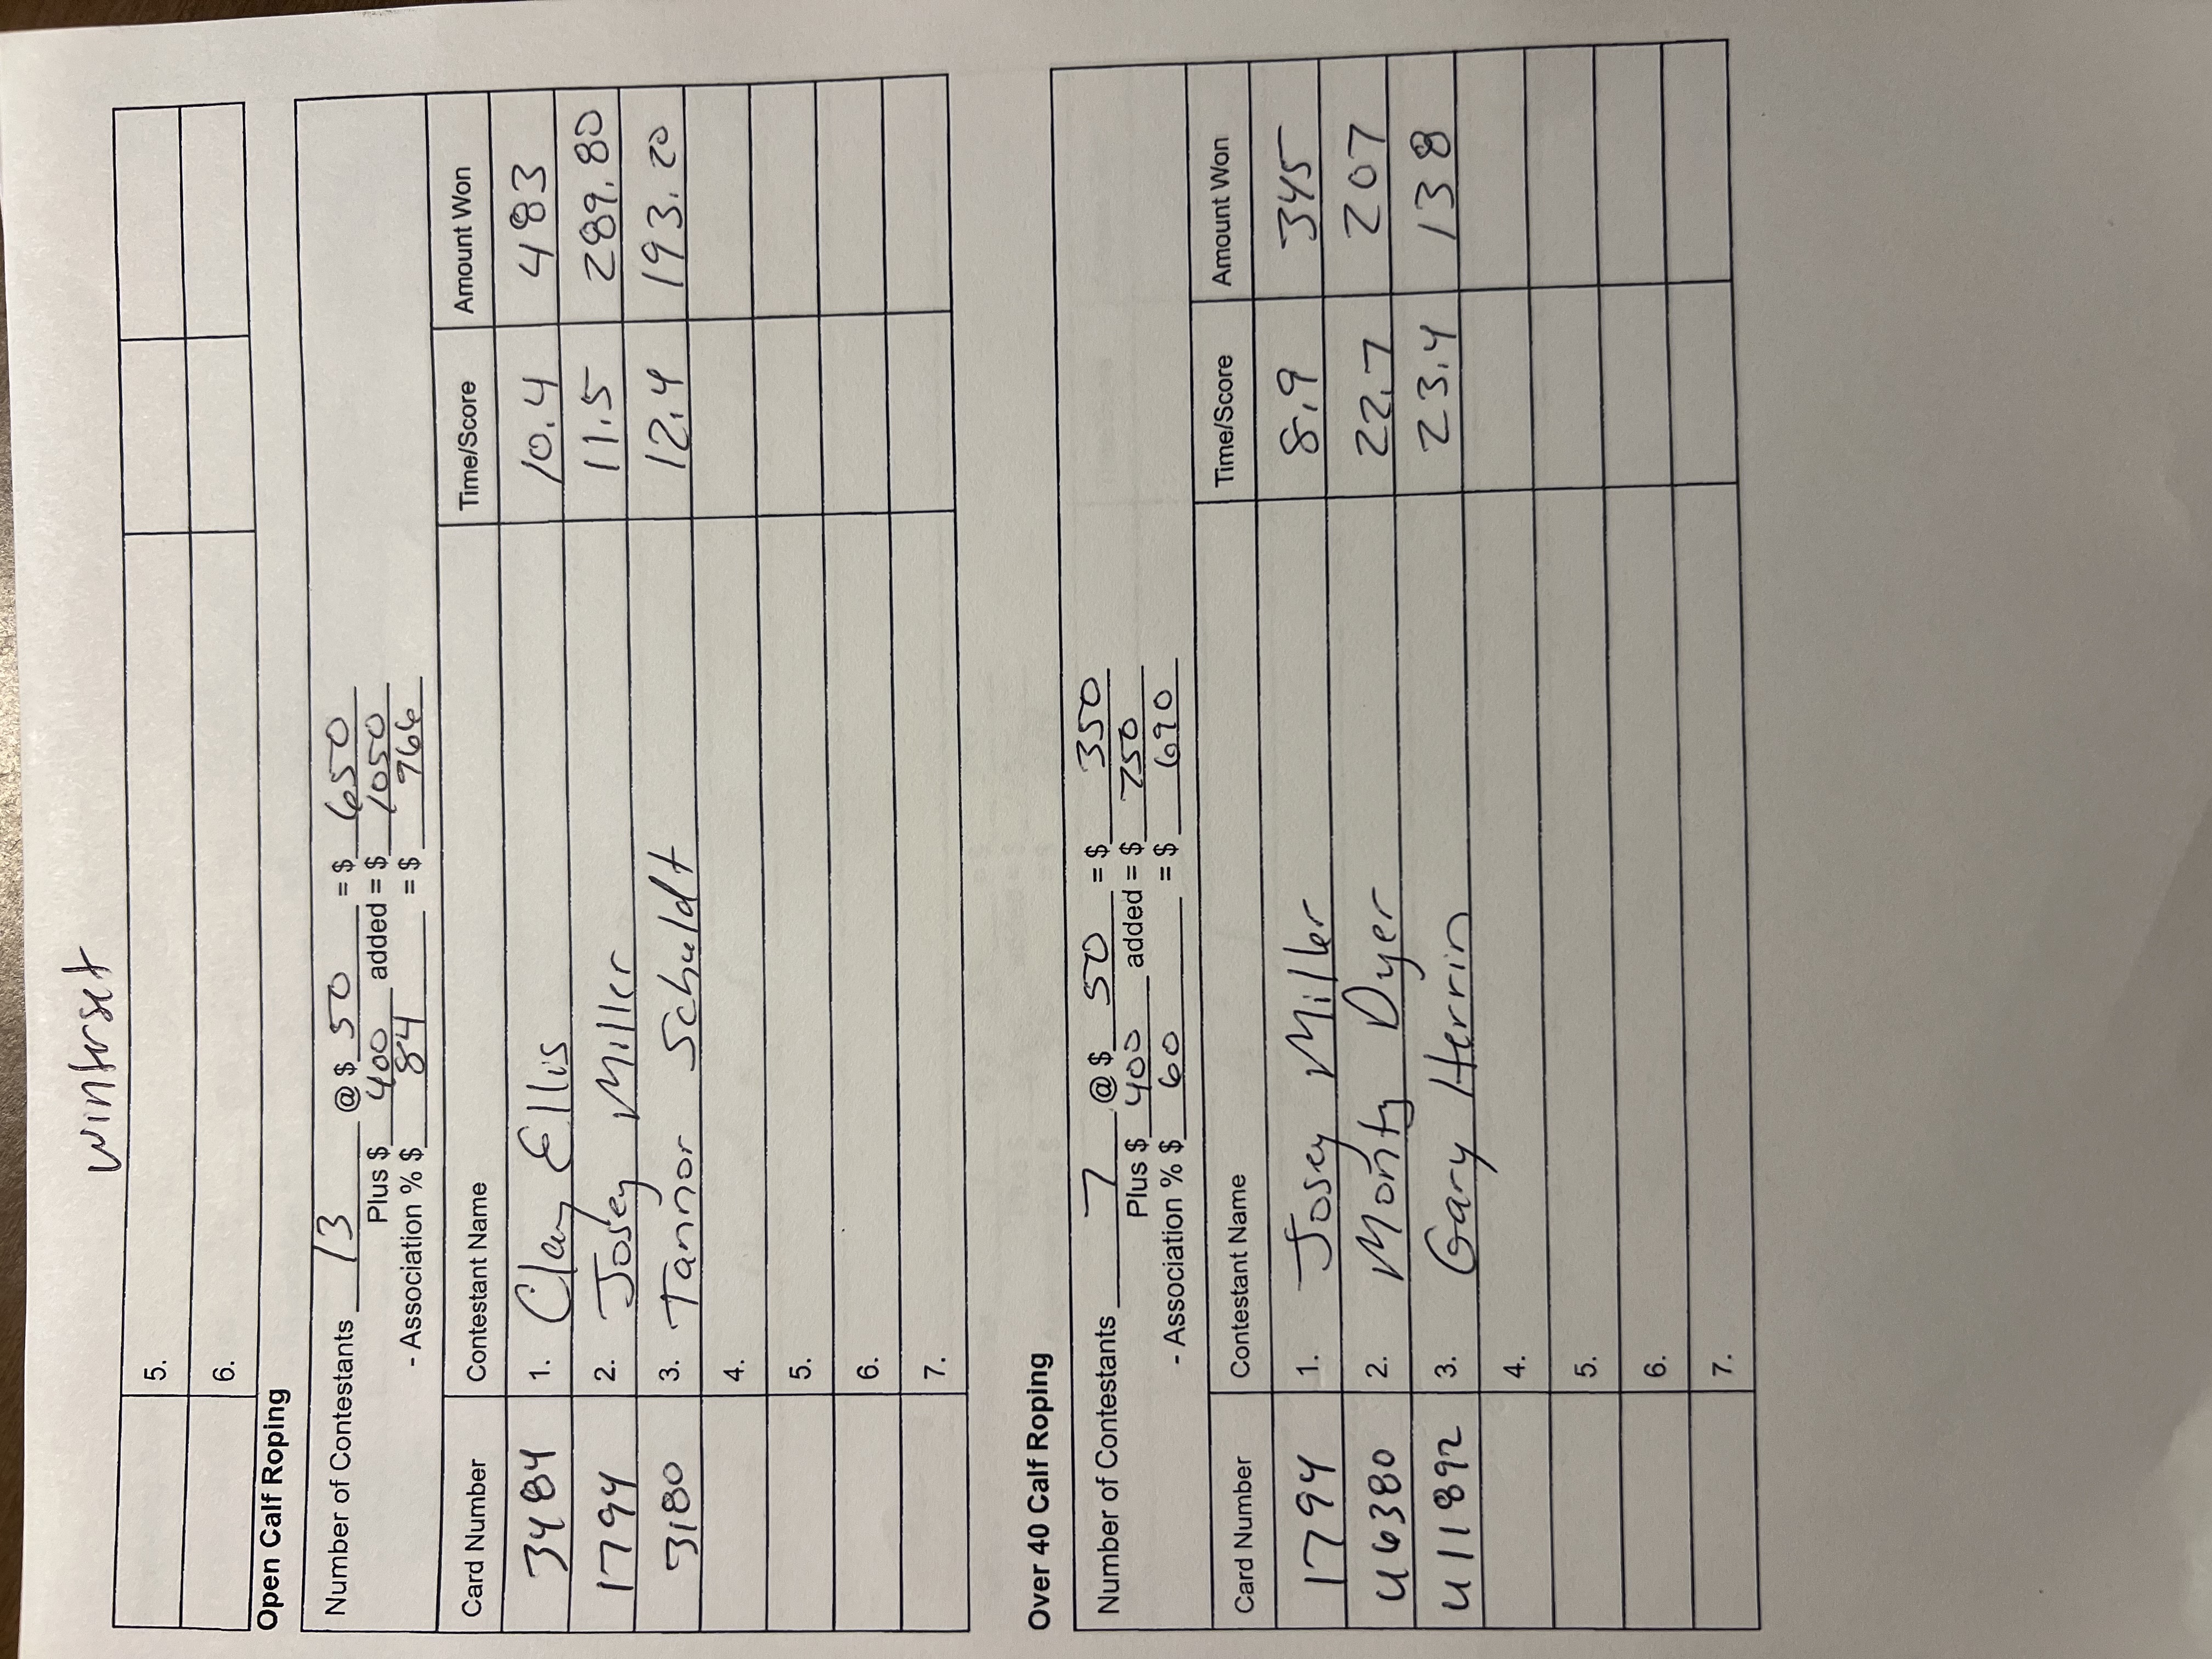 Winterset
5.
6.
Open Calf Roping
Number of Contestants 13 @ $ 50 = $ 650
Plus $ 400 added = $ 1050
- Association % $ 84 = $ 966
Card Number Contestant Name Time/Score Amount Won
3484 1. Clay Ellis 10.4 483
1794 2. Josey Miller 11.5 289.80
3180 3. Tannor Schuldt 12.4 193.20
4.
5.
6.
7.
Over 40 Calf Roping
Number of Contestants 7 @ $ 50 = $ 350
Plus $ 400 added = $ 750
- Association % $ 60 = $ 690
Card Number Contestant Name Time/Score Amount Won
1794 1. Josey Miller 8.9 345
U6380 2. Monty Dyer 22.7 207
U11892 3. Gary Herrin 23.4 138
4.
5.
6.
7.